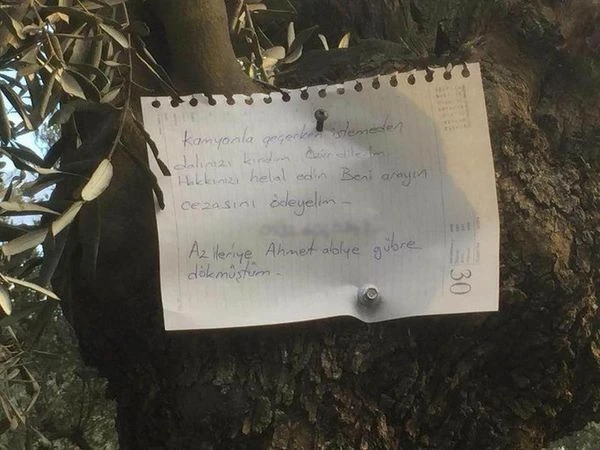 Kamyonla geçerken istemeden
dalınızı kırdım Özür dilerim.
Hakkınızı helal edin Beni arayın
cezasını ödeyelim -
Az ileriye Ahmet abiye gübre
dökmüştüm -
30